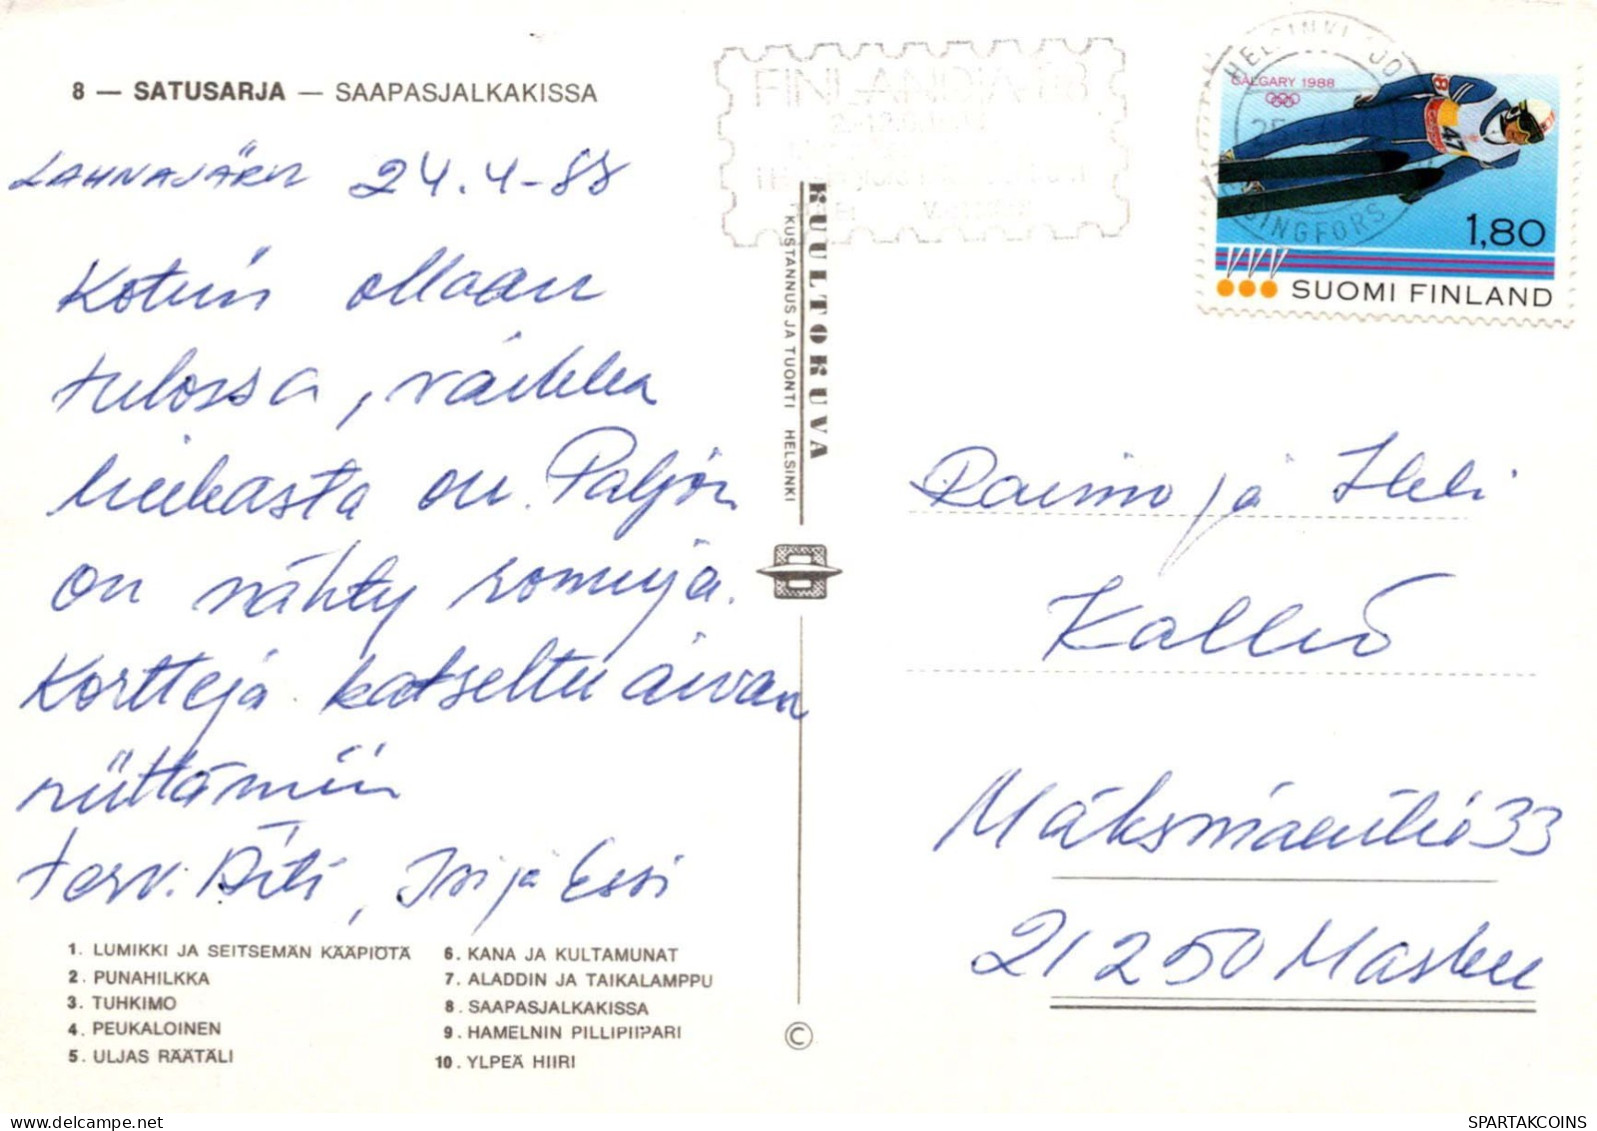 8 — SATUSARJA — SAAPASJALKAKISSA
LAHNAJÄRVI 24.4-88
Kotiin ollaan
tulossa, vaikka
hiukasta on. Paljon
on nähty romuja.
Kortteja katseltu aivan
riittämiin
terv. Äiti, Irsi ja Essi
1. LUMIKKI JA SEITSEMÄN KÄÄPIÖTÄ
2. PUNAHILKKA
3. TUHKIMO
4. PEUKALOINEN
5. ULJAS RÄÄTÄLI
6. KANA JA KULTAMUNAT
7. ALADDIN JA TAIKALAMPPU
8. SAAPASJALKAKISSA
9. HAMELNIN PILLIPIIPARI
10. YLPEÄ HIIRI
KUULTOKUVA
KUSTANNUS JA TUONTI HELSINKI
©
FINLANDIA 88
HELSINKI
HELSINGFORS
25
CALGARY 1988
47
1,80
SUOMI FINLAND
Raimo ja Heli
Kallio
Mäksmäentie 33
21250 Masku
SPARTAKCOINS